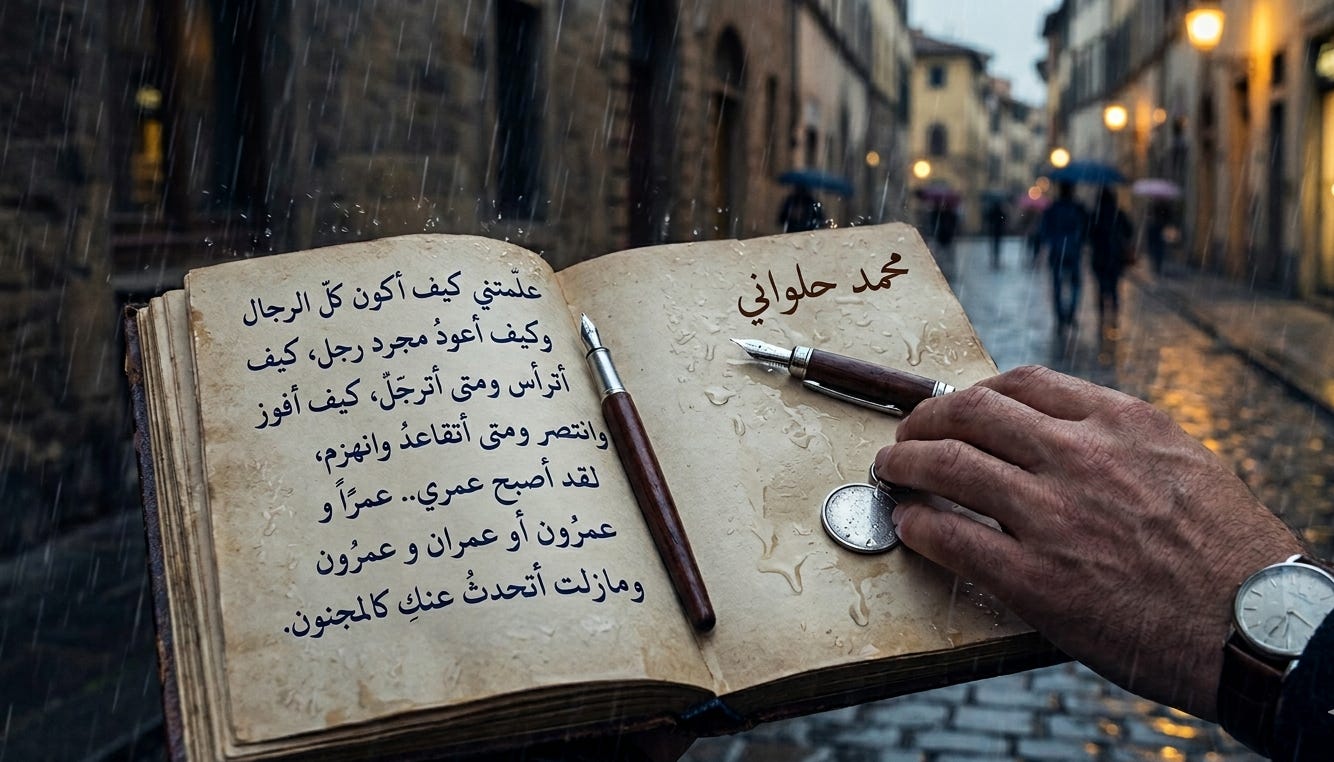 علّمتني كيف أكون كلّ الرجال
وكيف أعودُ مجرد رجل، كيف
أترأس ومتى أترجّلّ، كيف أفوز
وانتصر ومتى أتقاعدُ وانهزم،
لقد أصبح عمري.. عمرًاً و
عمرُون أو عمران و عمرُون
ومازلت أتحدثُ عنكِ كالمجنون.
محمد حلواني